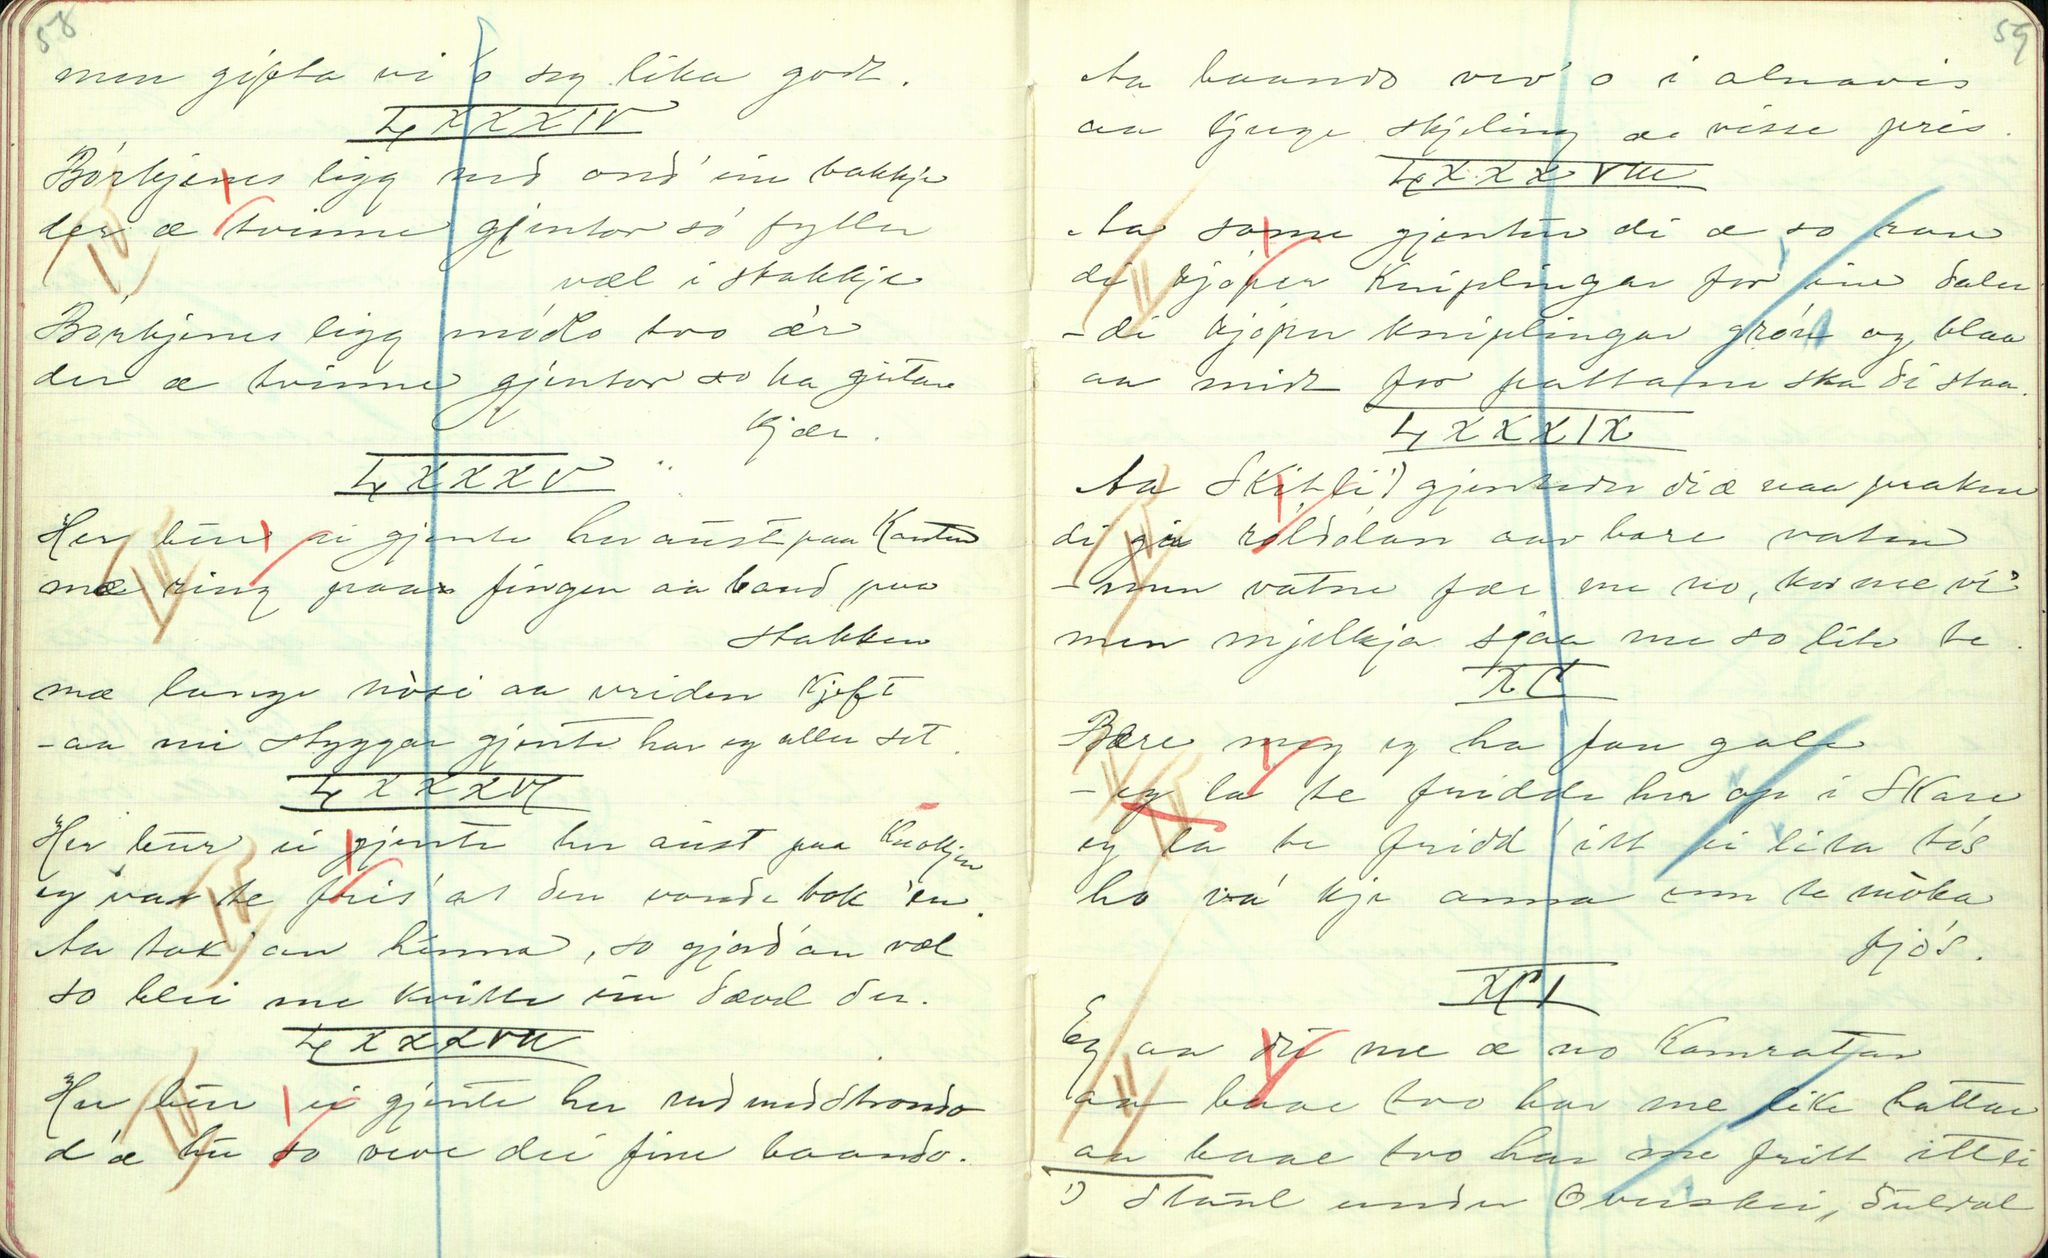 58
men gifta vi o seg lika godt.
LXXXIV
Bórkjenes ligg ned ond' ein bakkje
der æ tvinne gjentor só fyller
væl i stakkje
Bórkjenes ligg módlo tvo ær
der æ tvinne gjentor so ha gjetar
kjær.
LXXXV
Her bur ei gjente her aust paa Kanten
mæ ring paa fingen aa band paa
stakken
mæ lange nòsi aa vriden kjeft
- aa mi styggar gjente har eg aller set.
LXXXVI
Her bur ei gjente her aust paa
eg var te fris' at den vonde tok 'en.
Aa tok 'an hinna, so gjord' an væl
so blei me kvitte ein der.
LXXXVII
Her bur ei gjente her ned med Strondo
d'æ hu so veve dei fine baando.
59
Aa baando vev' o i alnavis
aa tjuge skjeling æ visse pris.
LXXXVIII
Aa some gjenten di æ so rare
di kjóper kniplingar for ein daler
- di kjóper kniplingar grón og blaa
aa midt for pattane ska di staa.
LXXXIX
Aa Skitli¹) gjentedn di æ naa
di gje aav bare vaten
- men vatne fær me no, kor me vi'
men mjelkja sjaa me so lite te.
XC
Bære meg eg ha fau gale
- eg la te fridde her op i Skare
eg la te fridd' itt ei lita tós
ho va' kje anna enn te móka
fjós.
XCI
Eg aa du me æ no kamratar
aa baae tvo har me like hattar
aa baae tvo har me fritt itt ei
¹) Stául under Overskei, Suldal